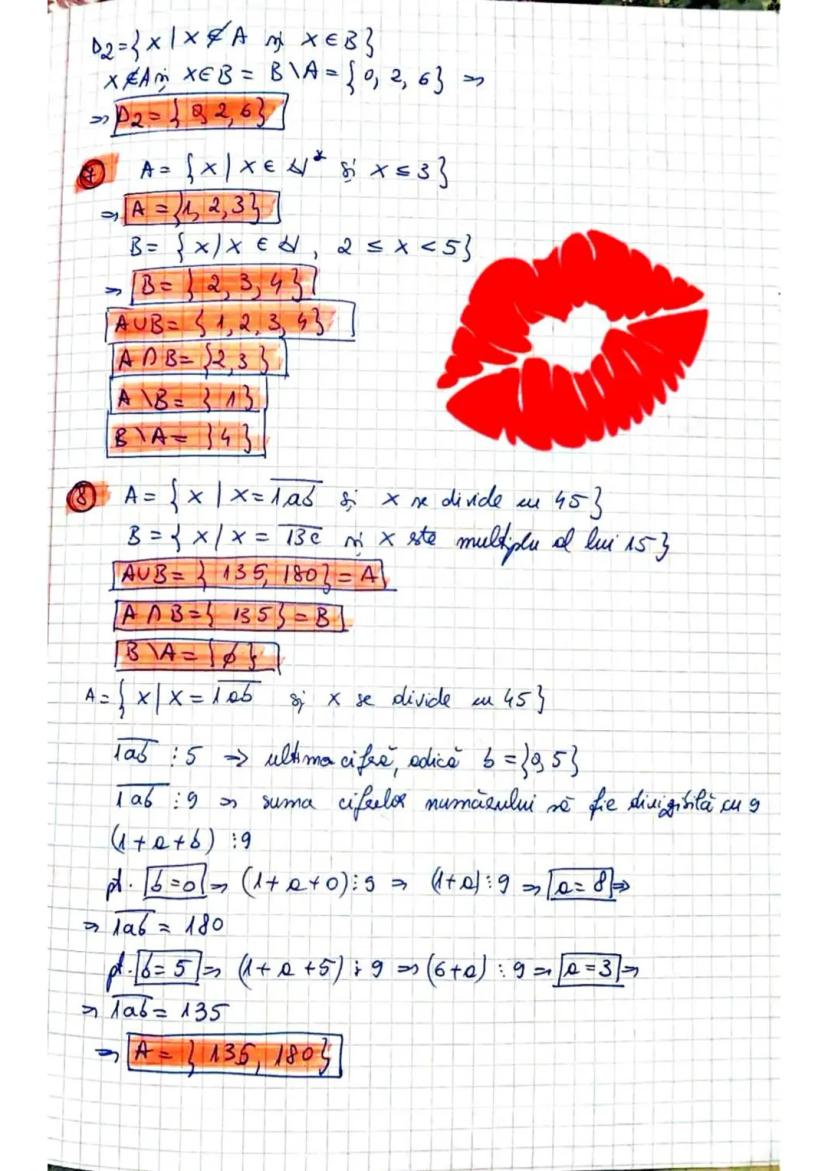 D₂={x|x∉A și x∈B}
x∉A și x∈B = B\A={0, 2, 6} ⇒
⇒ D₂={0, 2, 6}
7 A= {x|x∈ℕ* și x≤3}
⇒ A={1, 2, 3}
B= {x|x∈ℕ, 2≤x<5}
⇒ B={2, 3, 4}
A∪B={1, 2, 3, 4}
A∩B={2, 3}
A\B={1}
B\A={4}
8 A={x|x=1ab și x se divide cu 45}
B={x|x=13c și x este multiplu al lui 15}
A∪B={135, 180}=A
A∩B={135}=B
B\A={∅}
A={x|x=1ab și x se divide cu 45}
1ab⋮5 ⇒ ultima cifră, adică b={0, 5}
1ab⋮9 ⇒ suma cifrelor numărului să fie divizibilă cu 9
(1+a+b)⋮9
pt. b=0 ⇒ (1+a+0)⋮9 ⇒ (1+a)⋮9 ⇒ a=8 ⇒
⇒ 1ab=180
pt. b=5 ⇒ (1+a+5)⋮9 ⇒ (6+a)⋮9 ⇒ a=3 ⇒
⇒ 1ab=135
⇒ A={135, 180}